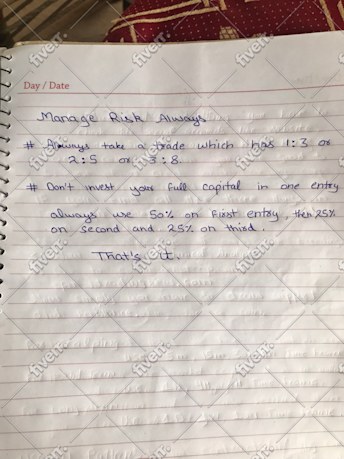 Day / Date
Manage Risk Always
# Always take a trade which has 1:3 or
2:5 or 3:8.
# Don't invest your full capital in one entry
always use 50% on First entry, then 25%
on second and 25% on third.
That's it.